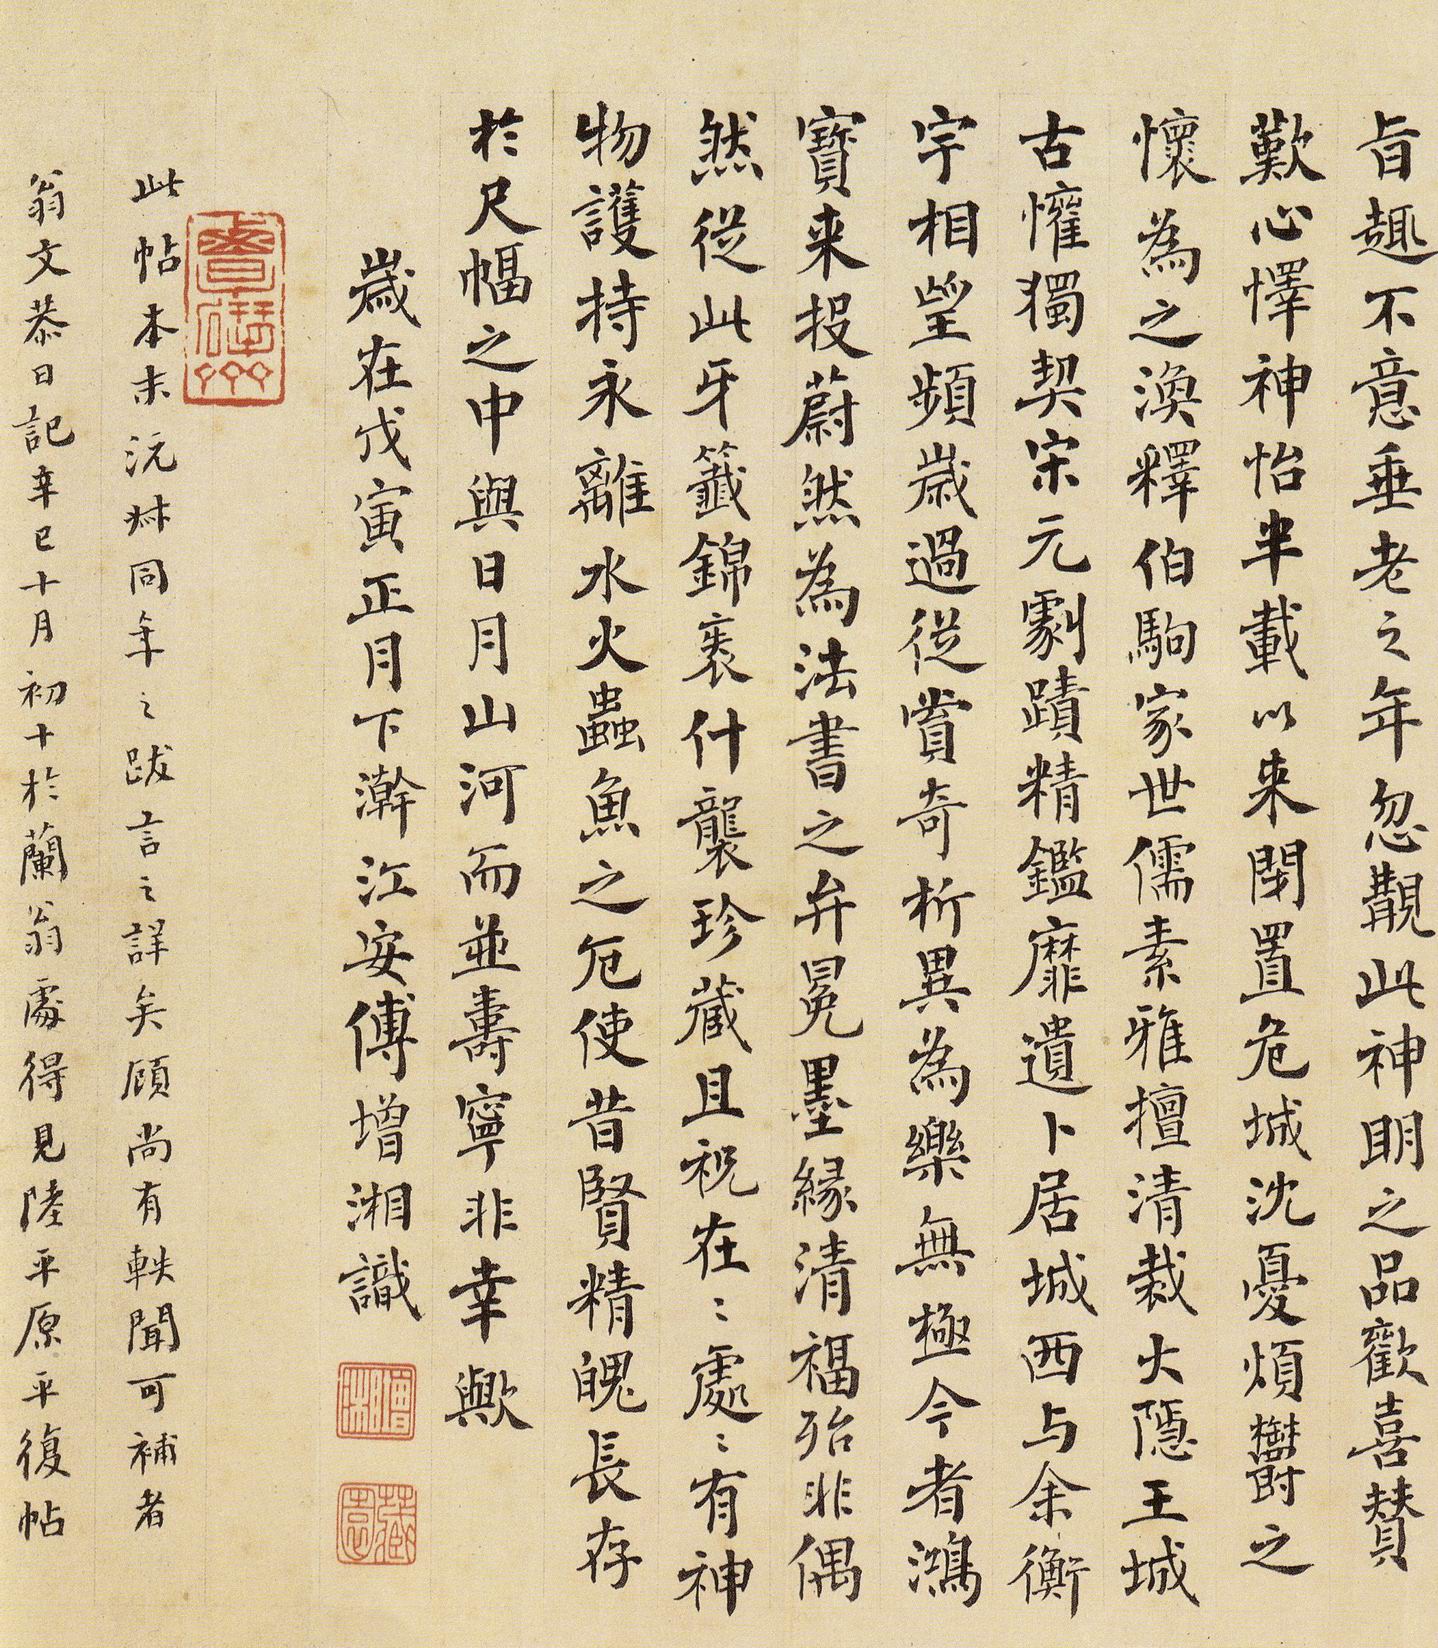 旨趣不意垂老之年忽覩此神明之品歡喜贊
歎心懌神怡半載以来閉置危城沈憂煩欝之
懷為之渙釋伯駒家世儒素雅擅清裁大隱王城
古懽獨契宋元劇蹟精鑑靡遺卜居城西与余衡
宇相望頻歲過從賞奇析異為樂無極今者鴻
寶来投蔚然為法書之弁冕墨緣清福殆非偶
然從此牙籤錦裹什襲珍藏且祝在〻處〻有神
物護持永離水火蟲魚之厄使昔賢精魄長存
於尺幅之中與日月山河而並壽寧非幸歟
歲在戊寅正月下澣江安傅增湘識
增湘
藏園
此帖本末沅叔同年之跋言之詳矣顧尚有軼聞可補者
翁文恭日記辛巳十月初十於蘭翁處得見陸平原平復帖